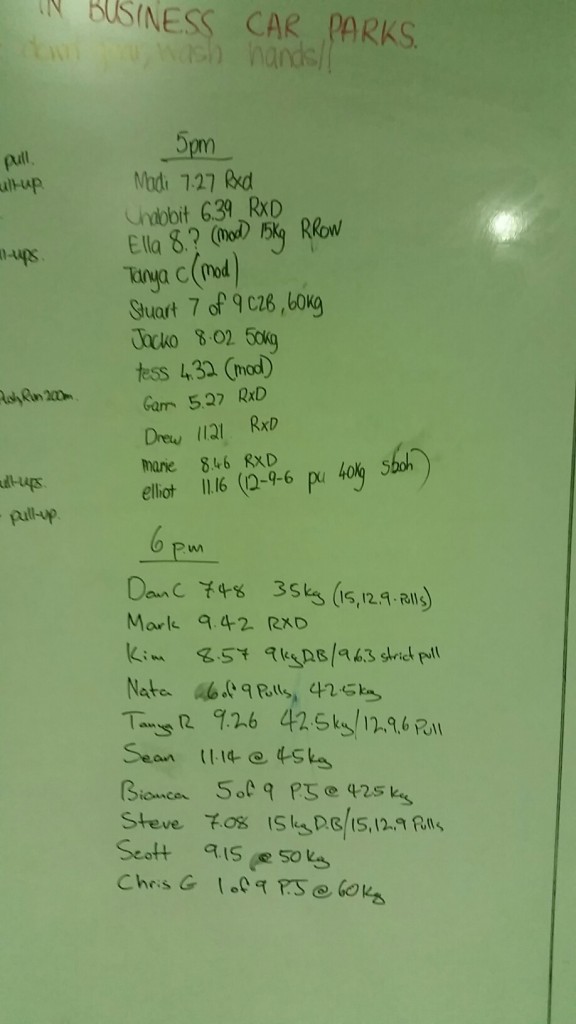 IN BUSINESS CAR PARKS.
wash hands!!
pull.
ull-up.
ll-ups.
Run 200m.
ull-ups.
pull-up.
5pm
Madi 7.27 Rxd
Chabbit 6.39 RXD
Ella 8.? (mod) 15kg RRow
Tanya C (mod)
Stuart 7 of 9 C2B, 60kg
Jacko 8.02 50kg
tess 4.32 (mod)
Garr 5.27 RXD
Drew 11.21 RXD
marie 8.46 RXD
elliot 11.16 (12-9-6 pu 40kg sboh)
6 p.m
Dan C 7.48 35kg (15,12,9-Pulls)
Mark 9.42 RXD
Kim 8.57 9kg DB/9.6.3 strict pull
Nata 6 of 9 Pulls, 42.5kg
Tanya R 9.26 42.5kg/12,9,6 Pull
Sean 11.14 @ 45kg
Bianca 5 of 9 P.J @ 42.5kg
Steve 7.08 15kg D.B/15,12,9 Pulls
Scott 9.15 @ 50kg
Chris G 1 of 9 P.J @ 60kg